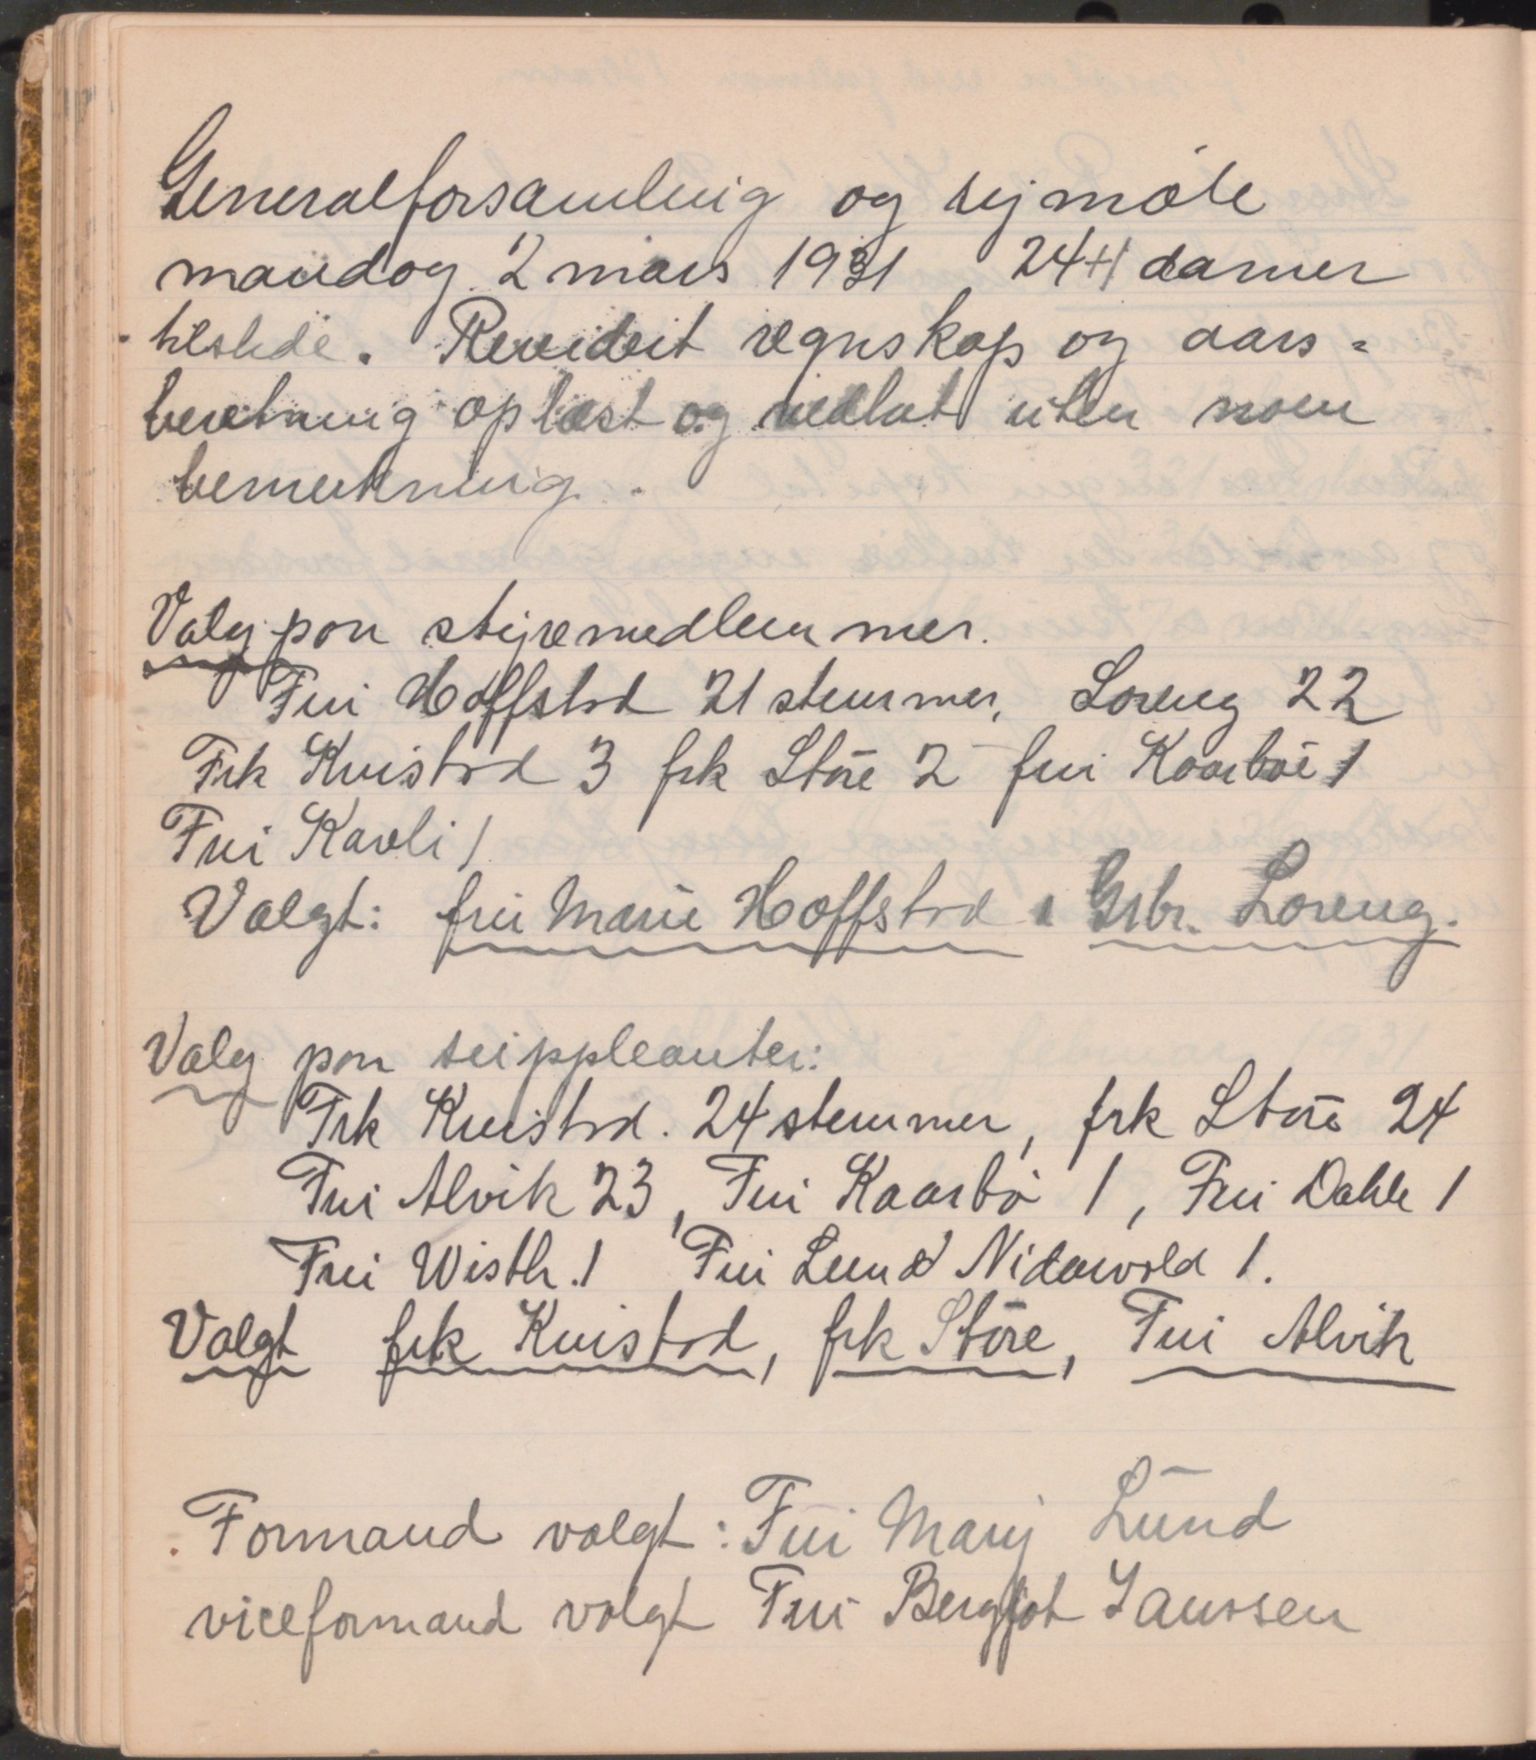 Generalforsamling og symøte
mandag 2 mars 1931 24+1 damer
tilstede. Revidert regnskap og aars-
beretning oplæst og vedtat uten noen
bemerkning.
Valg paa styremedlemmer.
Fru Hoffstad 21 stemmer, Loreng 22
Frk Kvistad 3 frk Støre 2 fru Kaarbøe 1
Fru Kavli 1
Valgt: fru Marie Hoffstad Grbr. Loreng.
Valg paa suppleanter:
Frk Kvistad. 24 stemmer, frk Støre 24
Fru Alvik 23, Fru Kaarbø 1, Fru Dahle 1
Fru Wisth. 1 Fru Lund Nidarvold 1.
Valgt frk Kvistad, frk Støre, Fru Alvik
Formand valgt: Fru Mary Lund
viceformand valgt Fru Bergljot Janssen